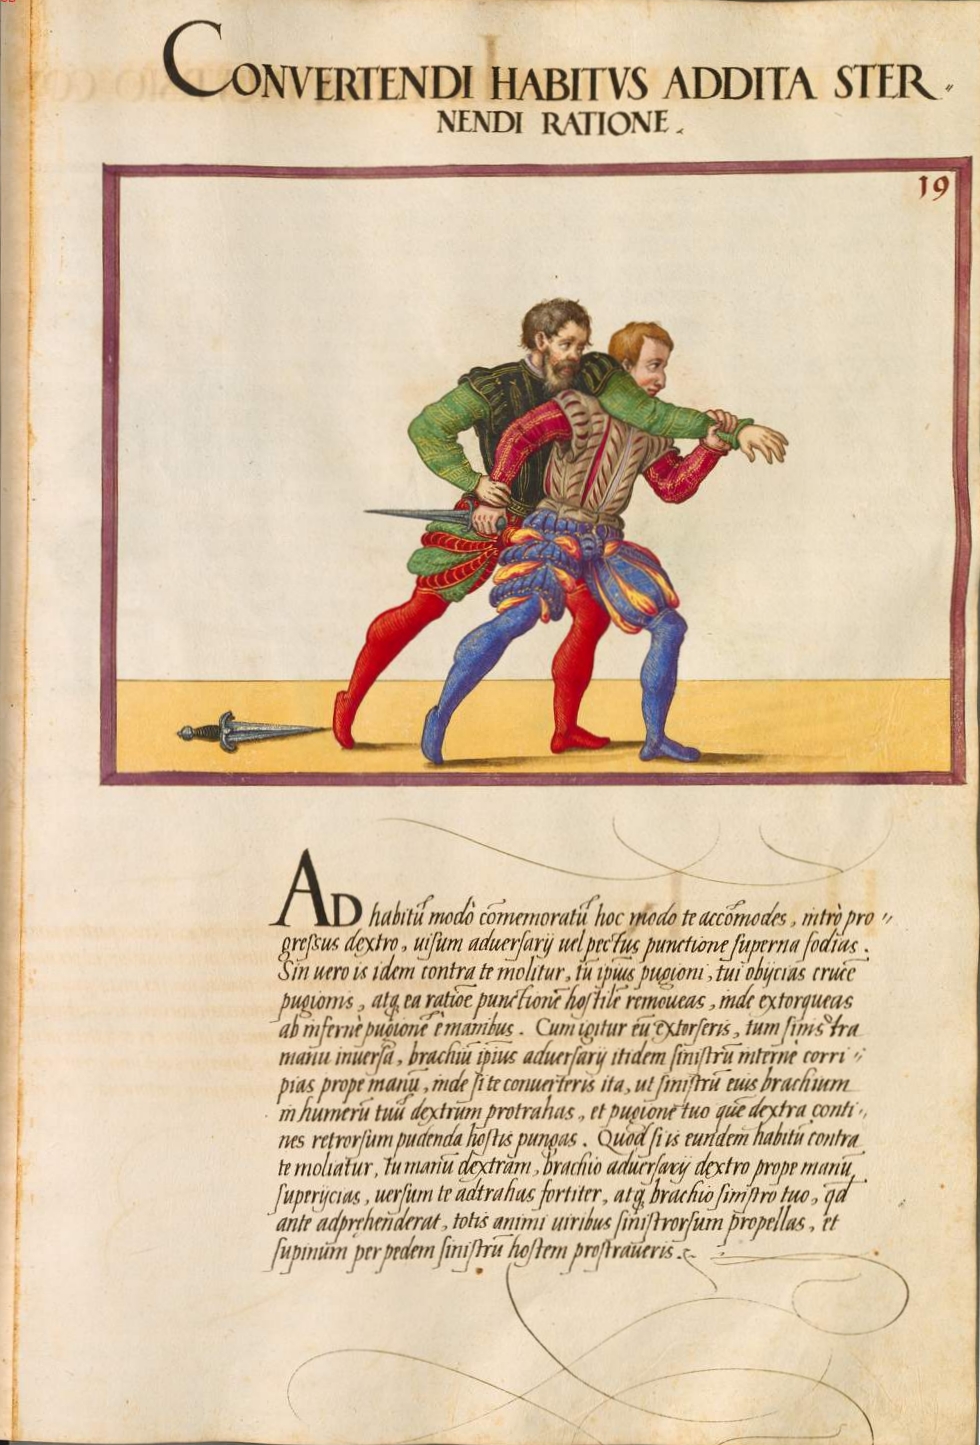 CONVERTENDI HABITVS ADDITA STER„
NENDI RATIONE.
19
AD habitū modò cōmemoratū hoc modo te accōmodes, intrò pro„
gressus dextro, uisum aduersarij uel pectus punctione superna fodias.
Sin uero is idem contra te molitur, tu ipsius pugioni, tui obijcias crucē
pugionis, atq̨ ea ratiōe punctionē hostilē remoueas, inde extorqueas
ab infernè pugionē è manibus. Cum igitur eū extorseris, tum sinistra
manu inuersa, brachiū ipius aduersarij itidem sinistrū internè corri„
pias prope manū, inde si te conuerteris ita, ut sinistrū euis brachium
in humerū tuū dextrum protrahas, et pugione tuo quē dextra conti„
nes retrorsum pudenda hostis pungas. Quod si is eundem habitū contra
te moliatur, tu manū dextram, brachio aduersarij dextro prope manū
superijcias, uersum te adtrahas fortiter, atq̨ brachio sinistro tuo, qd
ante adprehenderat, totis animi uiribus sinistrorsum propellas, et
supinum per pedem sinistrū hostem prostraueris.